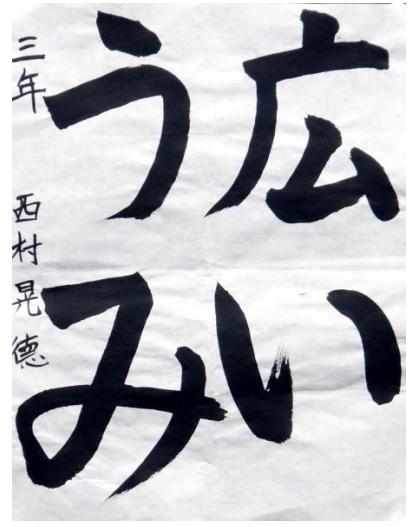 広い
うみ
三年 西村晃徳